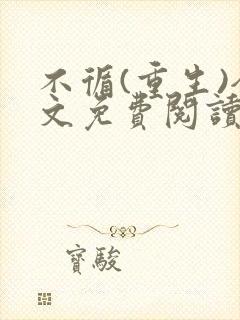 不循(重生)
文免費閱讀
寶駿